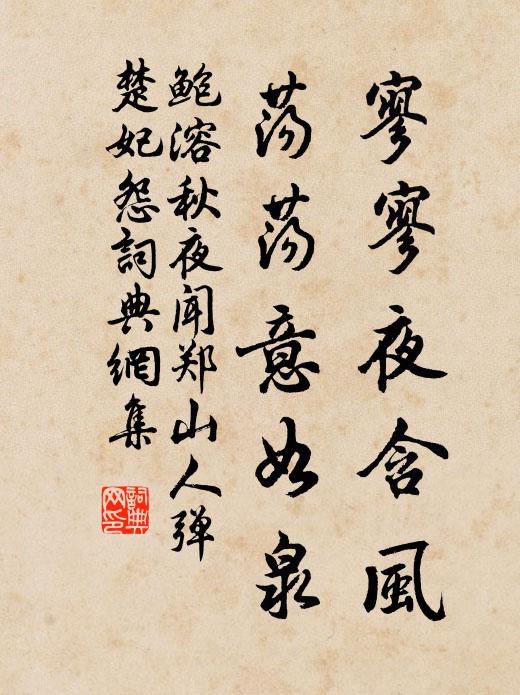 寥寥夜含風
蕩蕩意如泉
鲍溶秋夜闻郑山人弹
楚妃怨詞典網集
詞典
网印